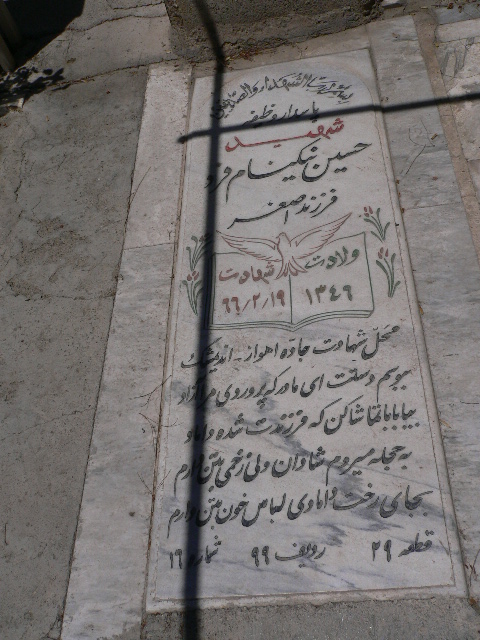 بسم رب الشهداء والصدیقین
پاسدار وظیفه
شهید
حسین نیکنام فرد
فرزند اصغر
ولادت
۱۳۴۶
شهادت
۶۶/۲/۱۹
محل شهادت جاده اهواز - اندیمشک
ببوسم دستت ای مادر که پروردی مرا آزاد
بیا بابا تماشا کن که فرزندت شده داماد
به حجله میروم شادان ولی زخمی بتن دارم
بجای رخت دامادی لباس خون بتن دارم
قطعه ۲۹ ردیف ۹۹ شماره ۱۶